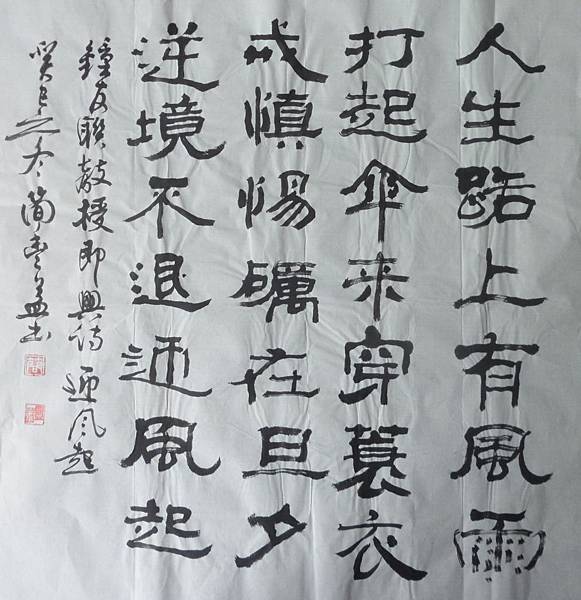 人生路上有風雨
打起傘来穿蓑衣
戒慎惕礪在旦夕
逆境不退迎風起
鐘友聯教授即興詩迎风起
癸巳之冬简孟書